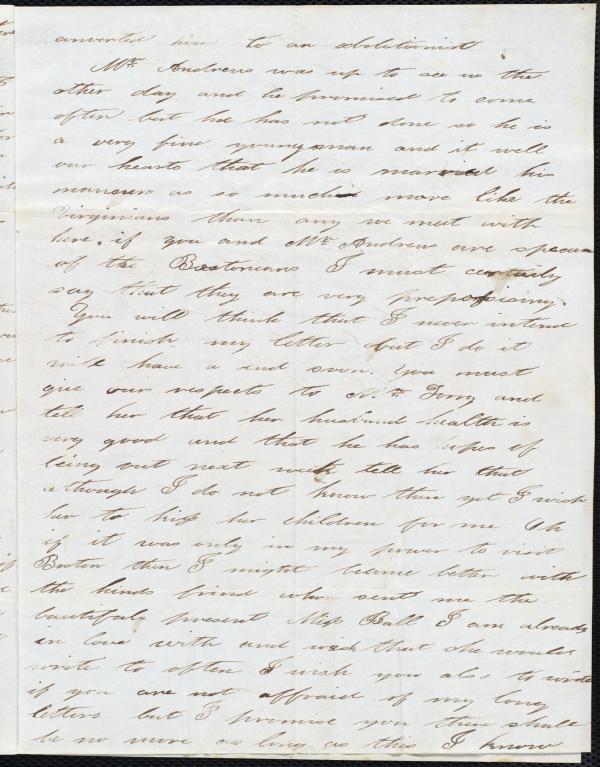 converted him to an abolitionist
Mr. Andrews was up to see us the
other day and he promised to come
often but he has not done so he is
a very fine young man and it well
our hearts that he is married his
manners as so much more like the
Virginians than any we meet with
here, if you and Mr. Andrews are specim
of the Bostonians I must certainly
say that they are very prepossessing.
You will think that I never intend
to finish my letter but I do it
will have a end soon. You must
give our respects to Mrs. Torry and
tell her that her husband health is
very good and that he has hopes of
being out next week tell her that
although I do not know them yet I wish
her to kiss her children for me Oh
if it was only in my power to visit
Boston then I might become better with
the kinds friend who sent me the
beautiful present Miss Ball I am already
in love with and wish that she would
write to often I wish you also to write
if you are not affraid of my long
letters but I promise you there shall
be no more as long as this I know